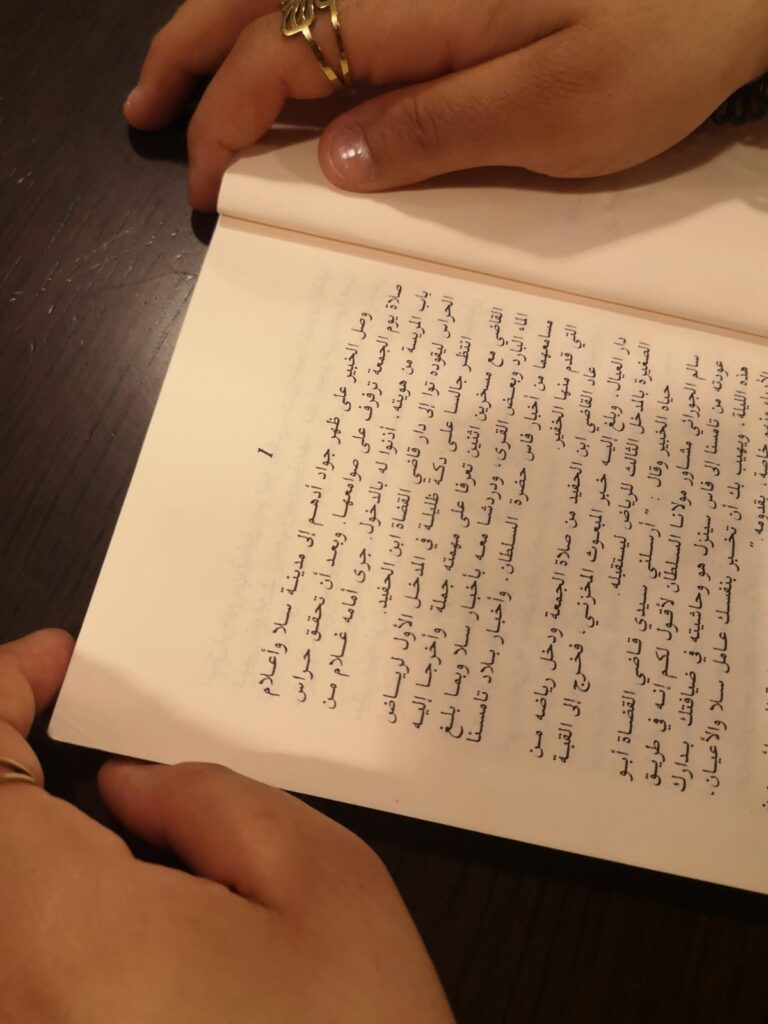 1
وصل الخبير على ظهر جواد أدهم إلى مدينة سلا وأعلام
صلاة يوم الجمعة ترفرف على صوامعها. وبعد أن تحقق حراس
باب المريسة من هويته. أذنوا له بالدخول. جرى أمامه غلام من
الحراس ليقوده توا إلى دار قاضي القضاة ابن الحفيد.
انتظر جالسا على دكة ظليلة في المدخل الأول لرياض
القاضي مع مسخرين اثنين تعرفا على مهمته جملة وأخرجا إليه
الماء البارد وبعض القرى، ودردشا معه بأخبار سلا وبما بلغ
مسامعهما من أخبار فاس حضرة السلطان، وأخبار بلاد تامسنا
التي قدم منها الخفير.
عاد القاضي ابن الحفيد من صلاة الجمعة ودخل رياضه من
دار العيال. وبلغ إليه خبر المبعوث المخزني، فخرج إلى القبة
الصغيرة بالمدخل الثالث للرياض ليستقبله.
حياه الخبير وقال : " أرسلني سيدي قاضي القضاة أبو
سالم الجورائي مشاور مولانا السلطان لأقول لكم إنه في طريق
عودته من تامسنا إلى فاس سينزل هو وحاشيته في ضيافتك بدارك
هذه الليلة، ويهيب بك أن تخبر بنفسك عامل سلا والأعيان،
خاصة، بقدومه."